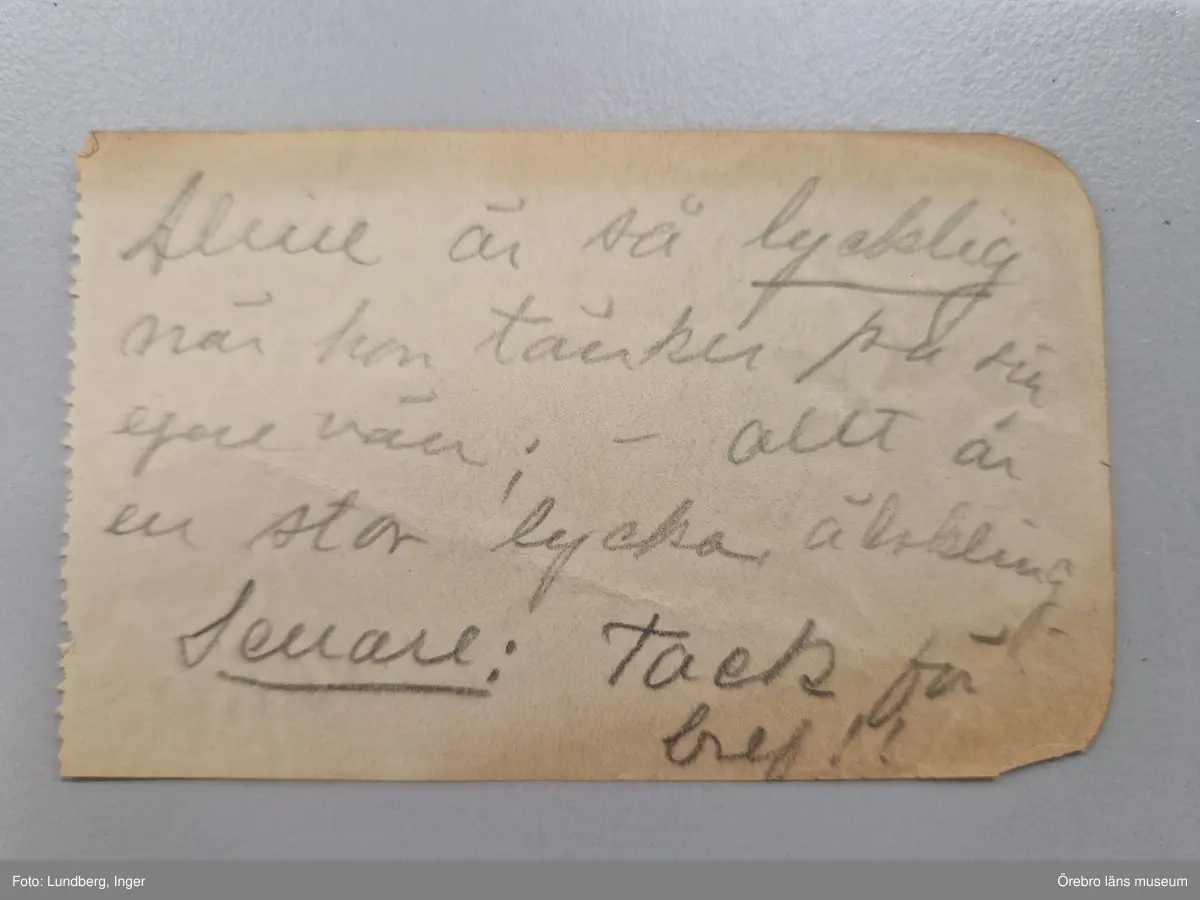 är så lycklig
när hon tänker på sin
egne vän; – allt är
en stor lycka älskling!
Senare: Tack för
bref!!
Foto: Lundberg, Inger
Örebro läns museum